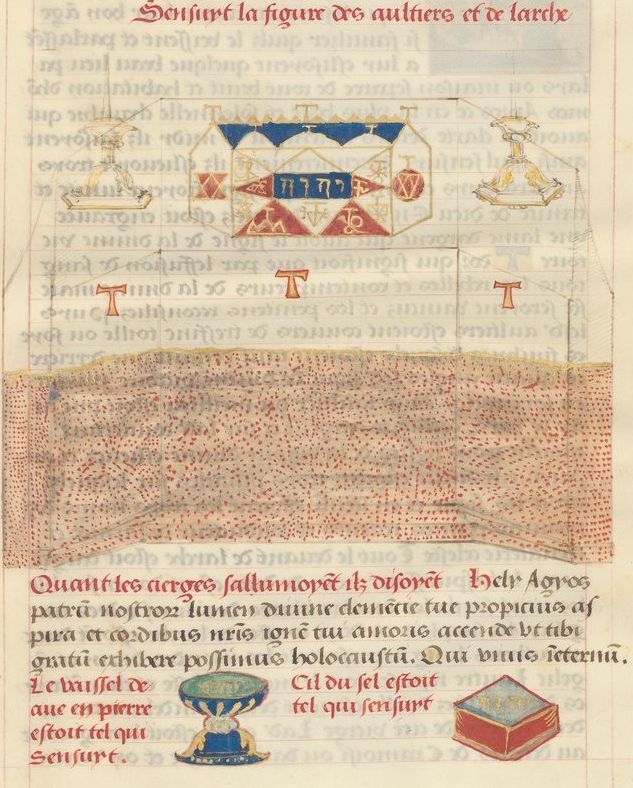 Sensuyt la figure des aultiers et de larche
T T T
יהוה
T T T
Quant les cierges sallumoyēt ilz disoyēt Hely Agyos
patrū nostroꝝ lumen diuine clemētie tue propicius as
pira et cordibus nr̄is ignē tui amoris accende vt tibi
gratū exhibere possimus holocaustū. Qui viuis īeternū.
Le vaissel de
aue en pierre
estoit tel qui
Sensuyt.
Cil du sel estoit
tel qui sensuyt